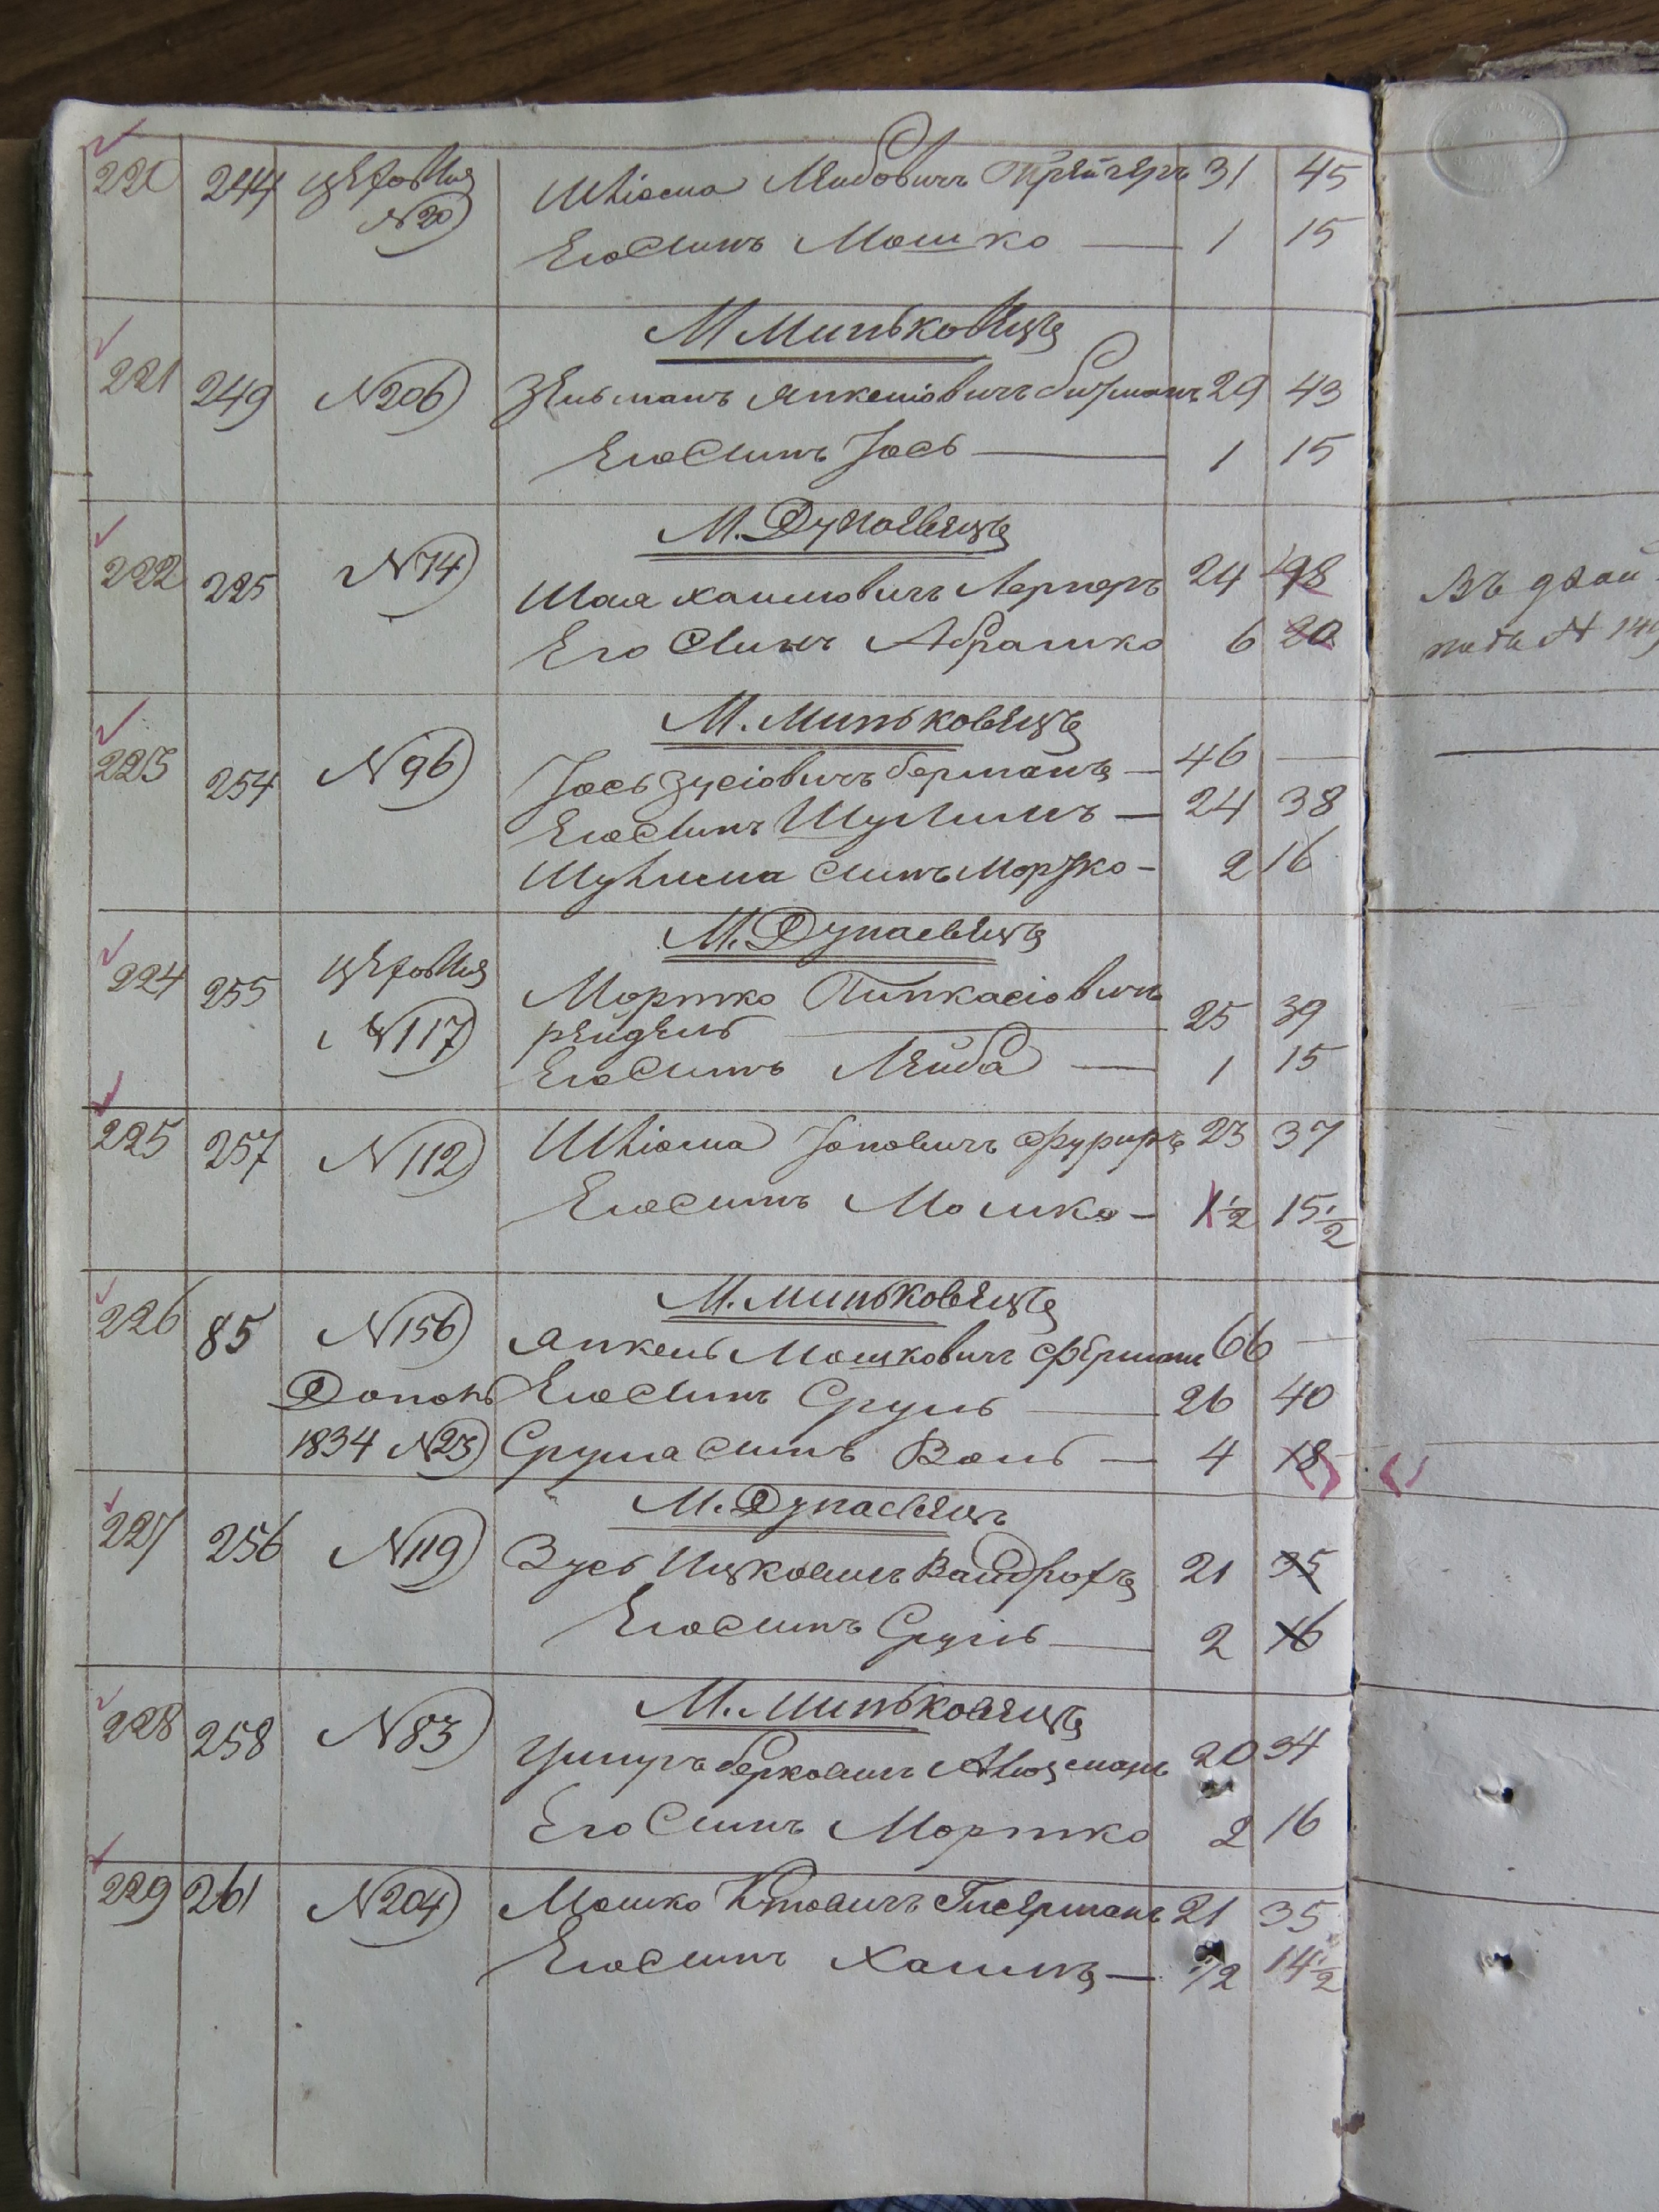 220 244 цеховые Шліома Лейбовичъ Трейгеръ 31 45
№20
Его Сынъ Мошко — 1 15
М. Миньковецъ
221 249 №206 Зельманъ Янкеліовичъ Гитманъ 29 43
Его Сынъ Іось — 1 15
М. Дунаевецъ
222 225 №74 Шая Хаимовичъ Лернеръ 24 98
Его Сынъ Абрамко 6 20
Въ
подъ № 149
М. Миньковецъ
223 254 №96 Іось Зусіовичъ Берманъ — 46 —
Его Сынъ Шулимъ — 24 38
Шулима Сынъ Мортко — 2 16
М. Дунаевецъ
224 255 цеховые Мортко Пинкасіовичъ
№117 Рейдель — 25 39
Его Сынъ Лейба — 1 15
225 257 №112 Шліома Іоновичъ Фуриръ 23 37
Его Сынъ Мошко — 1 1/2 15 1/2
М. Миньковецъ
226 85 №156 Янкель Мошковичъ Ферманъ 66 —
Допол Его Сынъ Сруль — 26 40
1834 №23 Сруля Сынъ Волъ — 4 18
М. Дунаевецъ
227 256 №119 Зусь Ицковичъ 21 35
Его Сынъ Сруль — 2 16
М. Миньковецъ
228 258 №83 Умиръ Берковичъ 20 34
Его Сынъ Мортко 2 16
229 261 №204 Мошко 21 35
Его Сынъ Хаимъ — 1/2 14 1/2